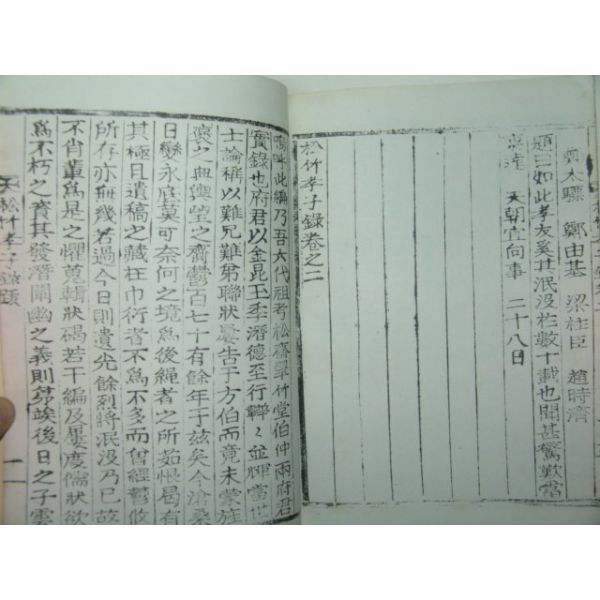 鄭太驃 鄭由基 梁柱臣 趙時濟
題曰如此孝友奚其泯沒於數十載也聞甚驚歎當
天朝宜向事 二十八日
松竹孝子錄卷之二
嗚呼此編乃吾六代祖考松齋翠竹堂伯仲兩府君
實錄也府君以金昆玉季潛德至行轔〻並輝當世
士論稱以難兄難弟聯狀屢告于方伯而竟未蒙旌
之典輿望之齋鬱百七十有餘年于玆矣今滄桑
日變永底莫可奈何之境爲後繩者之所茹恨曷有
其極且遺稿之藏在巾衍者不爲不多而曾經鬱攸
所存亦無幾若過今日則遺光餘烈將泯沒乃已故
不肖輩爲是之懼蒐輯狀碣若干編及屢度儒狀欲
爲不朽之資其發潛闡幽之義則茆竢後日之子雲
松竹孝子錄跋